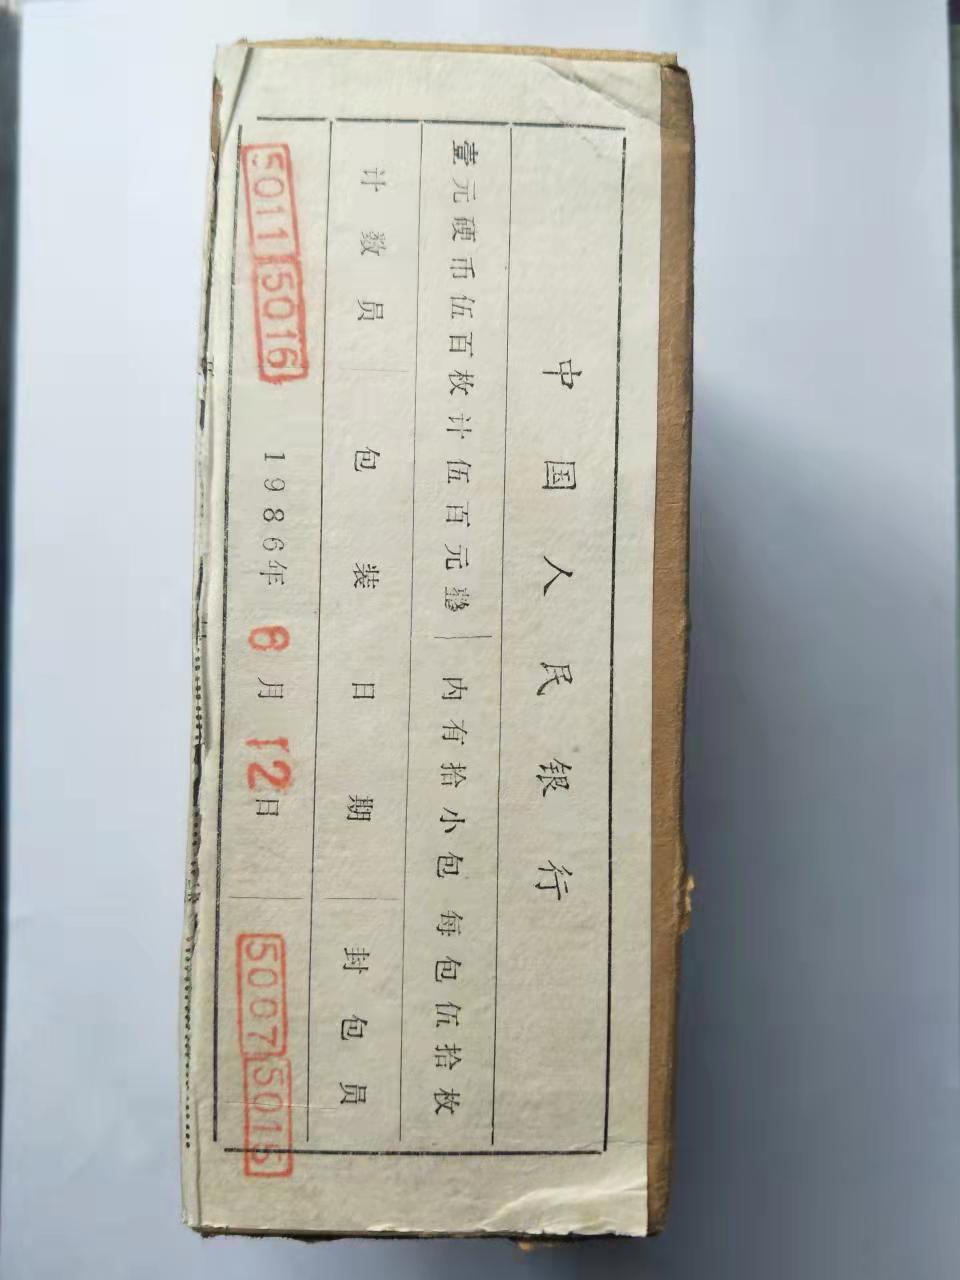 中国人民银行
壹元硬币伍百枚计伍百元整 内有拾小包每包伍拾枚
计数员 包装日期 封包员
5011 5016 1986年8月12日 5007 5015